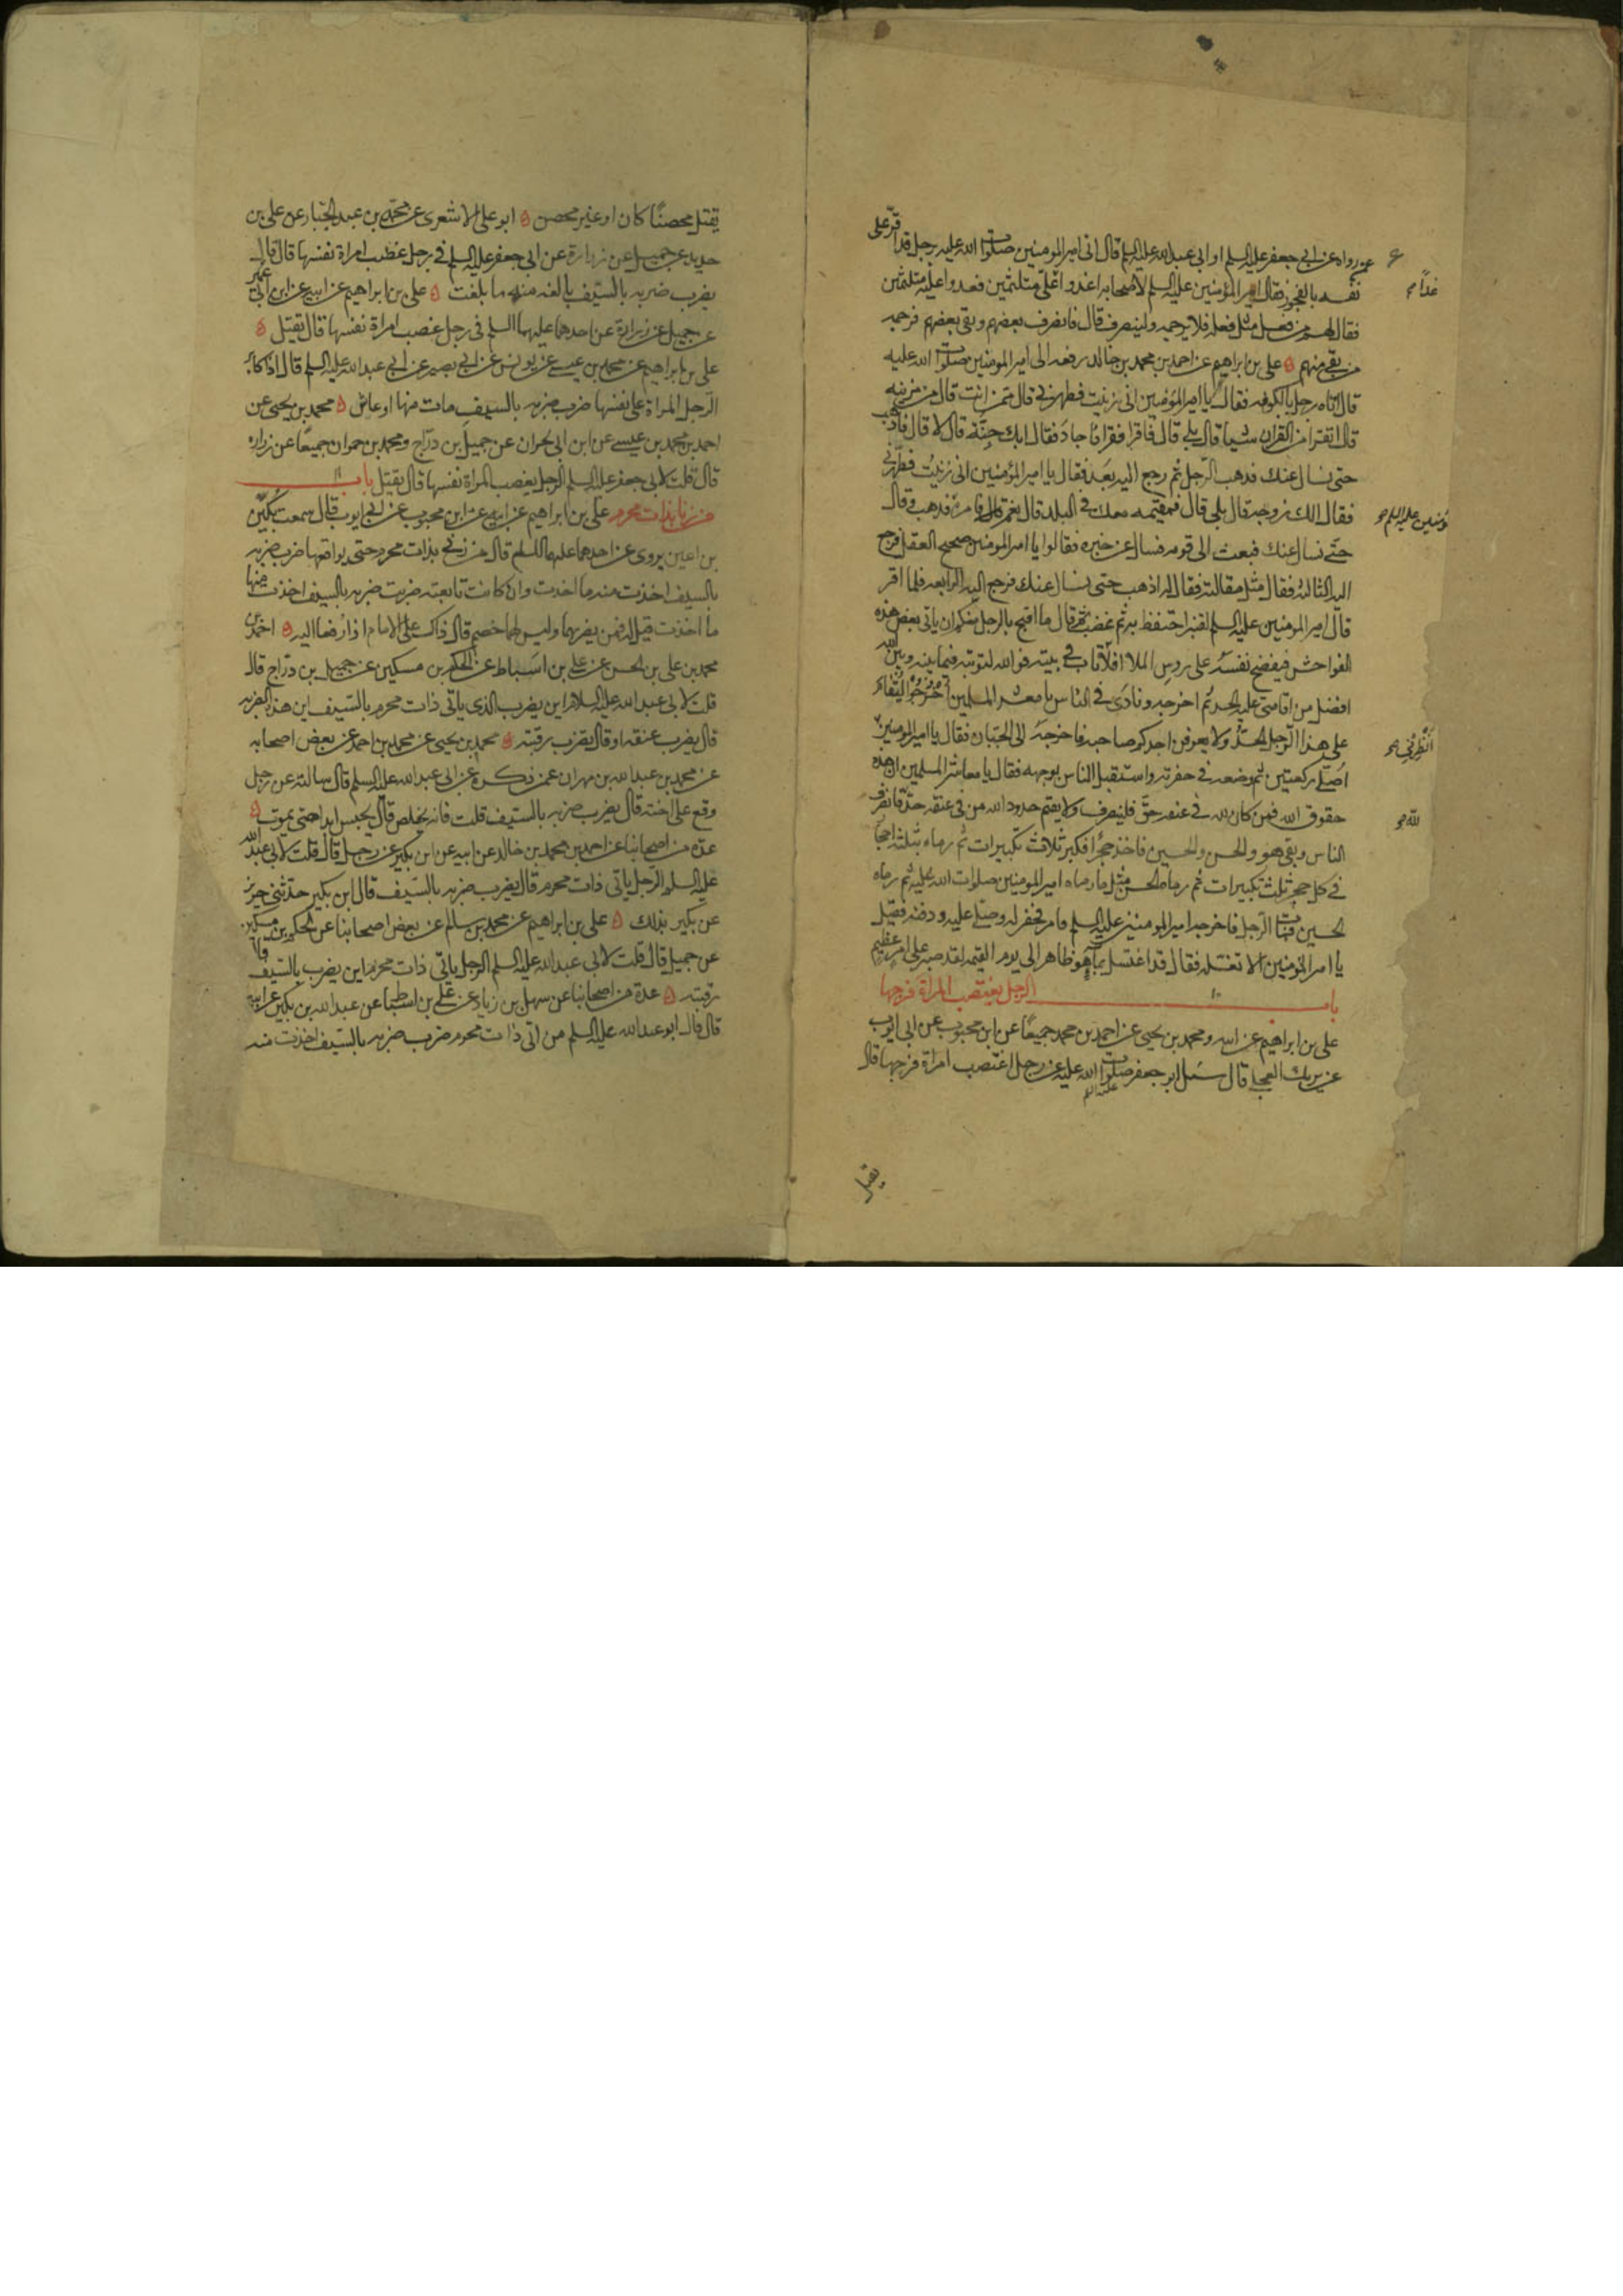 عمن رواه عن ابي جعفر عليه السلم او ابي عبد الله عليه السلم قال اتى امير المومنين صلوات الله عليه برجل قد اقر على
نفسه بالفجور فقال امير المؤمنين عليه السلم لاصحابه اغدوا علي متلثمين فغدوا عليه متلثمين
غدا
فقال لهم من فعل مثل فعله فلا يرجمه ولينصرف قال فانصرف بعضهم وبقي بعضهم فرجمه
من بقي منهم ه علي بن ابراهيم عن احمد بن محمد بن خالد رفعه الى امير المومنين صلوات الله عليه
قال اتاه رجل بالكوفه فقال يا امير المؤمنين اني زنيت فطهرني قال ممن انت قال من مزينه
قال اتقرا من القران شيا قال بلى قال فاقرا فقرا فاجاد فقال ابك جنة قال لا قال فاذهب
حتى نسال عنك فذهب الرجل ثم رجع اليه بعد فقال يا امير المؤمنين اني زنيت فطهرني
فقال الك زوجة قال بلى قال فمقيمه معك في البلد قال نعم قال فامره فذهب وقال
ؤمنين عليه السلم
حتى نسال عنك فبعث الى قومه فسال عن خبره فقالوا يا امير المومنين صحيح العقل فرجع
اليه الثالثه فقال مثل مقالته فقال له اذهب حتى نسال عنك فرجع اليه الرابعه فلما اقر
قال امير المومنين عليه السلم لقنبر احتفظ به ثم غضب ثم قال ما اقبح بالرجل منكم ان ياتي بعض هذه
الفواحش فيفضح نفسه على روس الملا افلا تاب في بيته فوالله لتوبته فيما بينه وبين الله
افضل من اقامتي عليه الحد ثم اخرجه ونادى في الناس يا معشر المسلمين اخرجوا ليقام
على هذا الرجل الحد ولا يعرفن احدكم صاحبه فاخرجه الى الجبان فقال يا امير المومنين
انظرني
اصلي ركعتين ثم وضعه في حفرته واستقبل الناس بوجهه فقال يا معاشر المسلمين ان هذه
حقوق الله فمن كان لله في عنقه حق فلينصرف ولا يقيم حدود الله من في عنقه حد فانصرف
لله
الناس وبقي هو والحسن والحسين فاخذ حجرا فكبر ثلاث تكبيرات ثم رماه بثلثة احجار
في كل حجر ثلث تكبيرات ثم رماه الحسن مثل ما رماه امير المومنين صلوات الله عليه ثم رماه
الحسين فمات الرجل فاخرجه امير المومنين عليه السلم فامر فحفر له وصلى عليه ودفنه فقيل
يا امير المؤمنين الا تغسله فقال قد اغتسل بما هو طاهر الى يوم القيمه لقد صبر على امر عظيم
باب الرجل يغتصب المراة فرجها
علي بن ابراهيم عن ابيه ومحمد بن يحيى عن احمد بن محمد جميعا عن ابن محبوب عن ابي ايوب
عن بريد العجلي قال سئل ابو جعفر صلوات الله عليه عن رجل اغتصب امراة فرجها قال
عليه السلم
يقتل
يقتل محصنا كان او غير محصن ه ابو علي الاشعري عن محمد بن عبد الجبار عن علي بن
حديد عن جميل عن زرارة عن ابي جعفر عليه السلم في رجل غصب امراة نفسها قال قال
يضرب ضربه بالسيف بالغه منه ما بلغت ه علي بن ابراهيم عن ابيه عن ابن ابي عمير
عن جميل عن زرارة عن احدهما عليهما السلم في رجل غصب امراة نفسها قال يقتل ه
علي بن ابراهيم عن محمد بن عيسى عن يونس عن ابي بصير عن ابي عبد الله عليه السلم قال اذا كابر
الرجل المراة على نفسها ضرب ضربه بالسيف مات منها او عاش ه محمد بن يحيى عن
احمد بن محمد بن عيسى عن ابن ابي نجران عن جميل بن دراج ومحمد بن حمران جميعا عن زراره
قال قلت لابي جعفر عليه السلم الرجل يغصب المراة نفسها قال يقتل باب
من زنا بذات محرم علي بن ابراهيم عن ابيه عن ابن محبوب عن ابي ايوب قال سمعت بكير
بن اعين يروي عن احدهما عليهما السلم قال من زنى بذات محرم حتى يواقعها ضرب ضربه
بالسيف اخذت منه ما اخذت وان كانت تابعته ضربت ضربه بالسيف اخذت منها
ما اخذت قيل له فمن يضربهما وليس لهما خصم قال ذاك على الامام اذا رفعا اليه ه احمد بن
محمد بن علي بن الحسن عن علي بن اسباط عن الحكم بن مسكين عن جميل بن دراج قال
قلت لابي عبد الله عليه السلام اين يضرب الذي ياتي ذات محرم بالسيف اين هذه الضربه
قال يضرب عنقه او قال يضرب رقبته ه محمد بن يحيى عن محمد بن احمد عن بعض اصحابه
عن محمد بن عبد الله بن مهران عمن ذكره عن ابي عبد الله عليه السلم قال سالته عن رجل
وقع على اخته قال يضرب ضربه بالسيف قلت فانه يخلص قال يحبس ابدا حتى يموت ه
عدة من اصحابنا عن احمد بن محمد بن خالد عن ابيه عن ابن بكير عن رجل قال قلت لابي عبد الله
عليه السلم الرجل ياتي ذات محرم قال يضرب ضربه بالسيف قال ابن بكير حدثني حريز
عن بكير بذلك ه علي بن ابراهيم عن محمد بن سالم عن بعض اصحابنا عن الحكم بن مسكين
عن جميل قال قلت لابي عبد الله عليه السلم الرجل ياتي ذات محرم اين يضرب بالسيف قال
رقبته ه عدة من اصحابنا عن سهل بن زياد عن علي بن اسباط عن عبد الله بن بكير عن ابيه
قال قال ابو عبد الله عليه السلم من اتى ذات محرم ضرب ضربه بالسيف اخذت منه